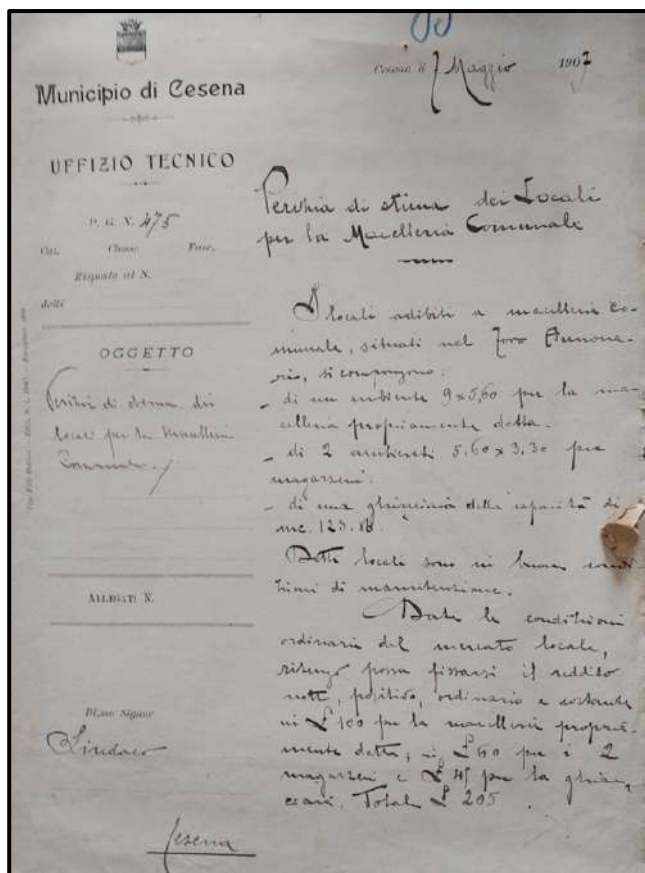 Municipio di Cesena
UFFIZIO TECNICO
P. G. N. 475
Cat. Classe Fasc.
Risposta al N.
delli
OGGETTO
Perizia di stima dei
locali per la Macelleria
Comunale
ALLEGATI N.
Ill.mo Signor
Sindaco
Cesena
Cesena li 7 Maggio 1907
Perizia di stima dei Locali
per la Macelleria Comunale
I locali adibiti a macelleria co-
munale, situati nel Foro Annona-
rio, si compongono:
- di un ambiente 9x5,60 per la ma-
celleria propriamente detta.
- di 2 ambienti 5.60 x 3.30 per
magazzeni.
- di una ghiacciaia della capacità di
mc. 123.
Detti locali sono in buone condi-
zioni di manutenzione.
Date le condizioni
ordinarie del mercato locale,
ritengo possa fissarsi il reddito
netto, positivo, ordinario e costante
in £ 100 per la macelleria propria-
mente detta; in £ 60 per i 2
magazzeni e £ 45 per la ghiac-
ciaia. Totale £ 205